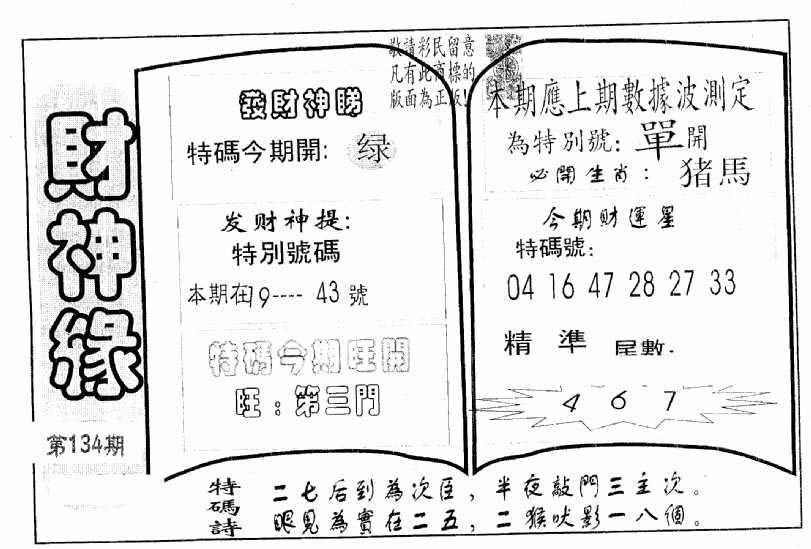 敬請彩民留意
凡有此商標的
版面為正版!
財神緣
第134期
發財神睇
特碼今期開: 绿
发财神提:
特別號碼
本期在19----43號
特碼今期旺開
旺:第三門
本期應上期數據波測定
為特別號:單開
必開生肖:猪馬
今期财運星
特碼號:
04 16 47 28 27 33
精準 尾數.
4 6 7
特碼詩
二七后到為次臣,半夜敲門三主次。
眼見為實在二五,二猴吠影一八個。